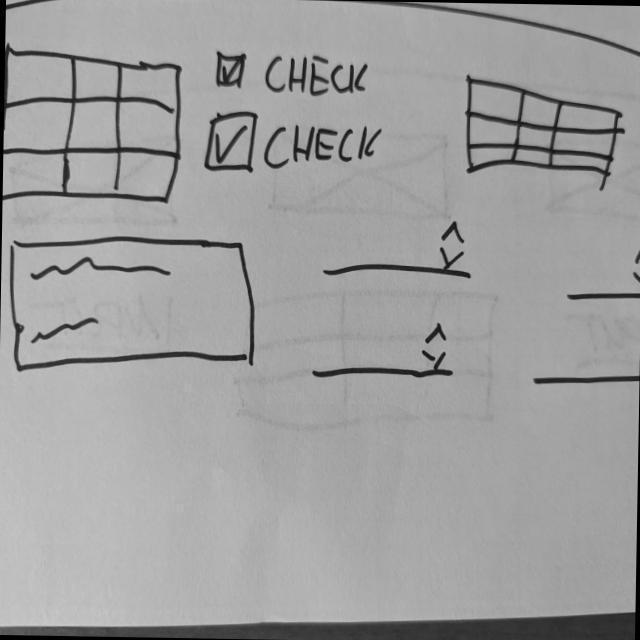 CHECK
CHECK